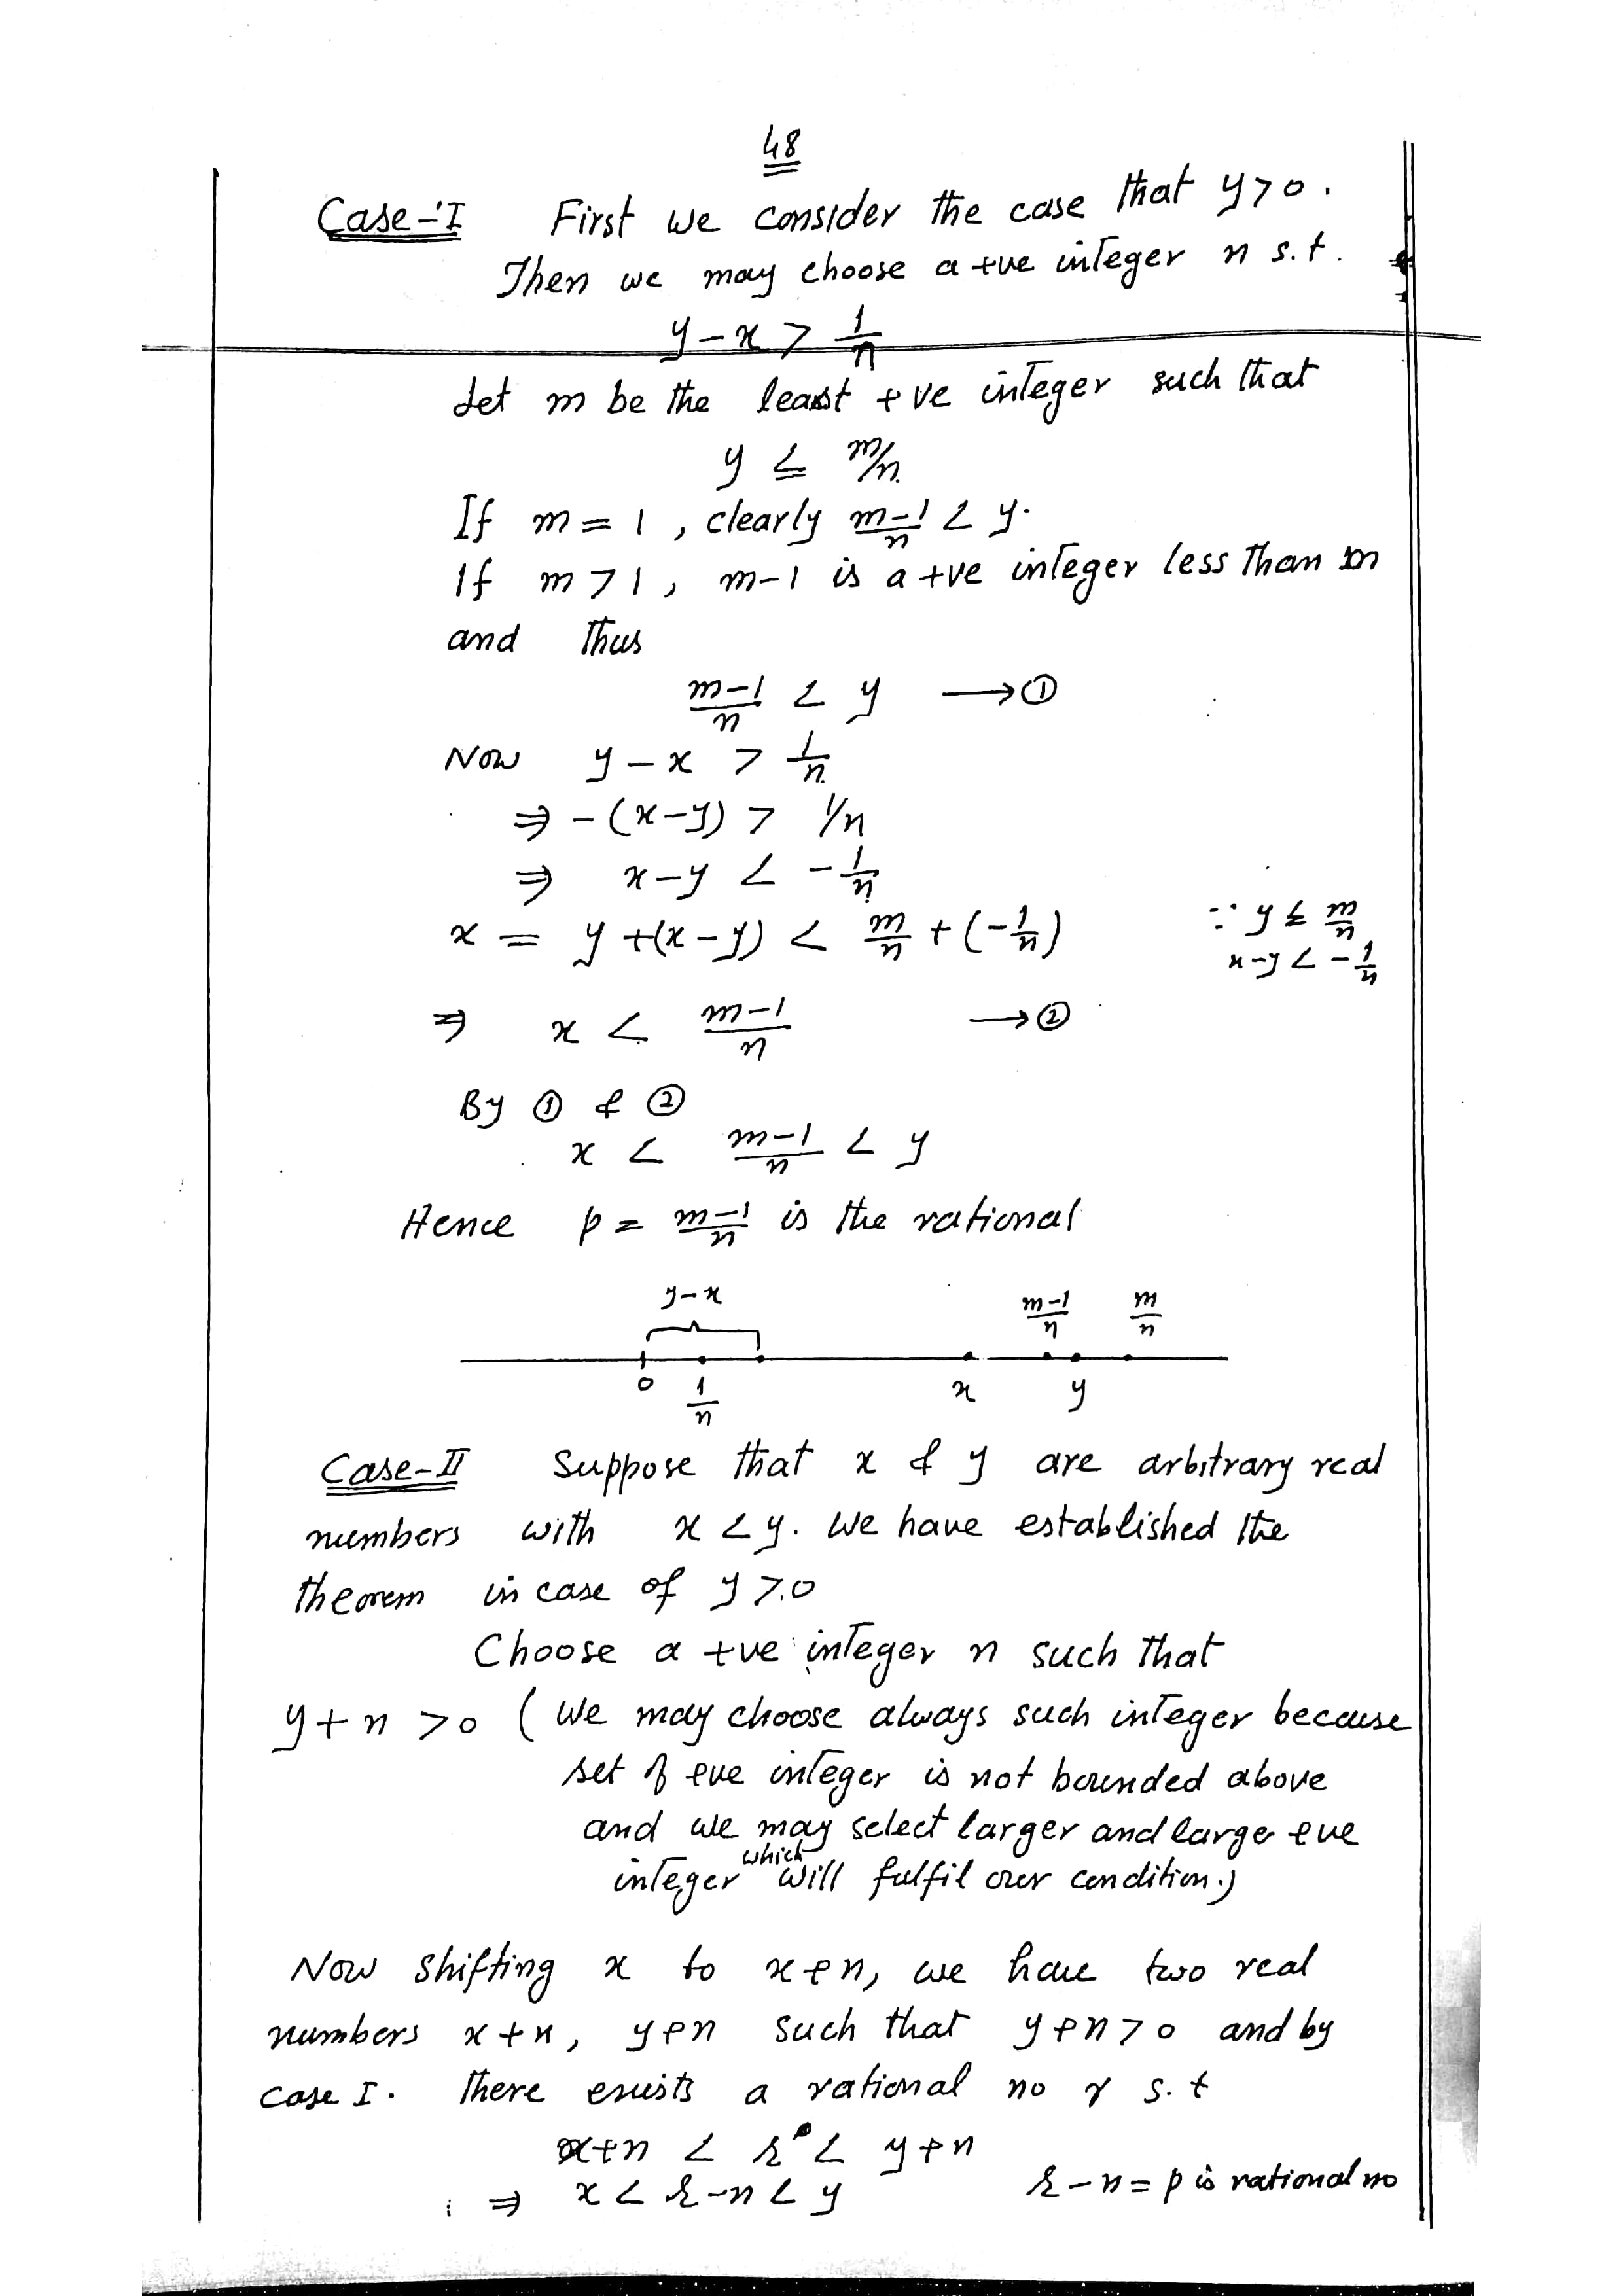 48
Case-I First we consider the case that y>0.
Then we may choose a +ve integer n s.t.
y-x > 1/n
Let m be the least +ve integer such that
y ≤ m/n.
If m = 1, clearly (m-1)/n < y.
If m > 1, m-1 is a +ve integer less than m
and thus
(m-1)/n < y ⟶ ①
Now y-x > 1/n.
⇒ -(x-y) > 1/n
⇒ x-y < -1/n
x = y+(x-y) < m/n + (-1/n) ∵ y ≤ m/n
x-y < -1/n
⇒ x < (m-1)/n ⟶ ②
By ① & ②
x < (m-1)/n < y
Hence p = (m-1)/n is the rational
y-x (m-1)/n m/n
0 1/n x y
Case-II Suppose that x & y are arbitrary real
numbers with x < y. We have established the
theorem in case of y >.0
Choose a +ve integer n such that
y+n >0 (We may choose always such integer because
set of +ve integer is not bounded above
and we may select larger and large +ve
integer which will fulfil our condition.)
Now shifting x to x+n, we have two real
numbers x+n, y+n such that y+n>0 and by
case I. There exists a rational no r s.t
x+n < r < y+n
⇒ x < r-n < y r-n = p is rational no